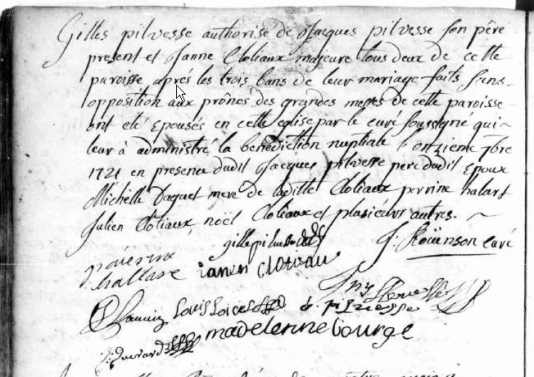 Gilles pilvesse authorisé de Jacques pilvesse son père
present et Janne Cloliaux majeure tous deux de cette
paroisse après les trois bans de leur mariage faits sans
opposition aux prônes des grandes messes de cette paroisse
ont été épousés en cette eglise par le curé soussigné qui
leur à administré la bénédiction nuptiale l'onzieme
1721 en presence dudit Jacques pilvesse pere dudit Epoux
Michelle Daguet mere de laditte Cloliaux perrine halart
Julien Cloliaux, noël Cloliaux et plusieurs autres.
gille pilvesse
curé
hallare
janne cloteau
Louis
madelenne bourge